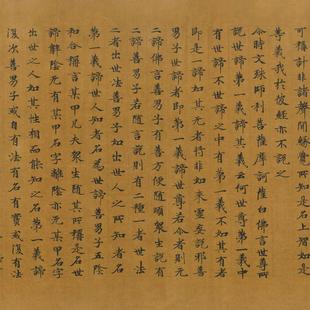 可稱計非諸聲聞緣覺所知是名上智如是
等義我於彼經亦不說之
尒時文殊師利菩薩摩訶薩白佛言世尊所
說世諦第一義諦其義云何世尊第一義中
有世諦不世諦之中有第一義不如其有者
即是一諦如其无者將非如來虛妄說耶善
男子世諦者即第一義諦世尊若尒者則无
二諦佛言善男子有善方便隨順眾生說有
二諦善男子若隨言說則有二種一者世法
二者出世法善男子如出世人之所知者名
第一義諦世人知者名為世諦善男子五陰
和合稱言某甲凡夫眾生隨其所稱是名世
諦解陰无有某甲名字離陰亦无某甲名字
出世之人如其性相而能知之名第一義諦
復次善男子或有法有名有實或復有法